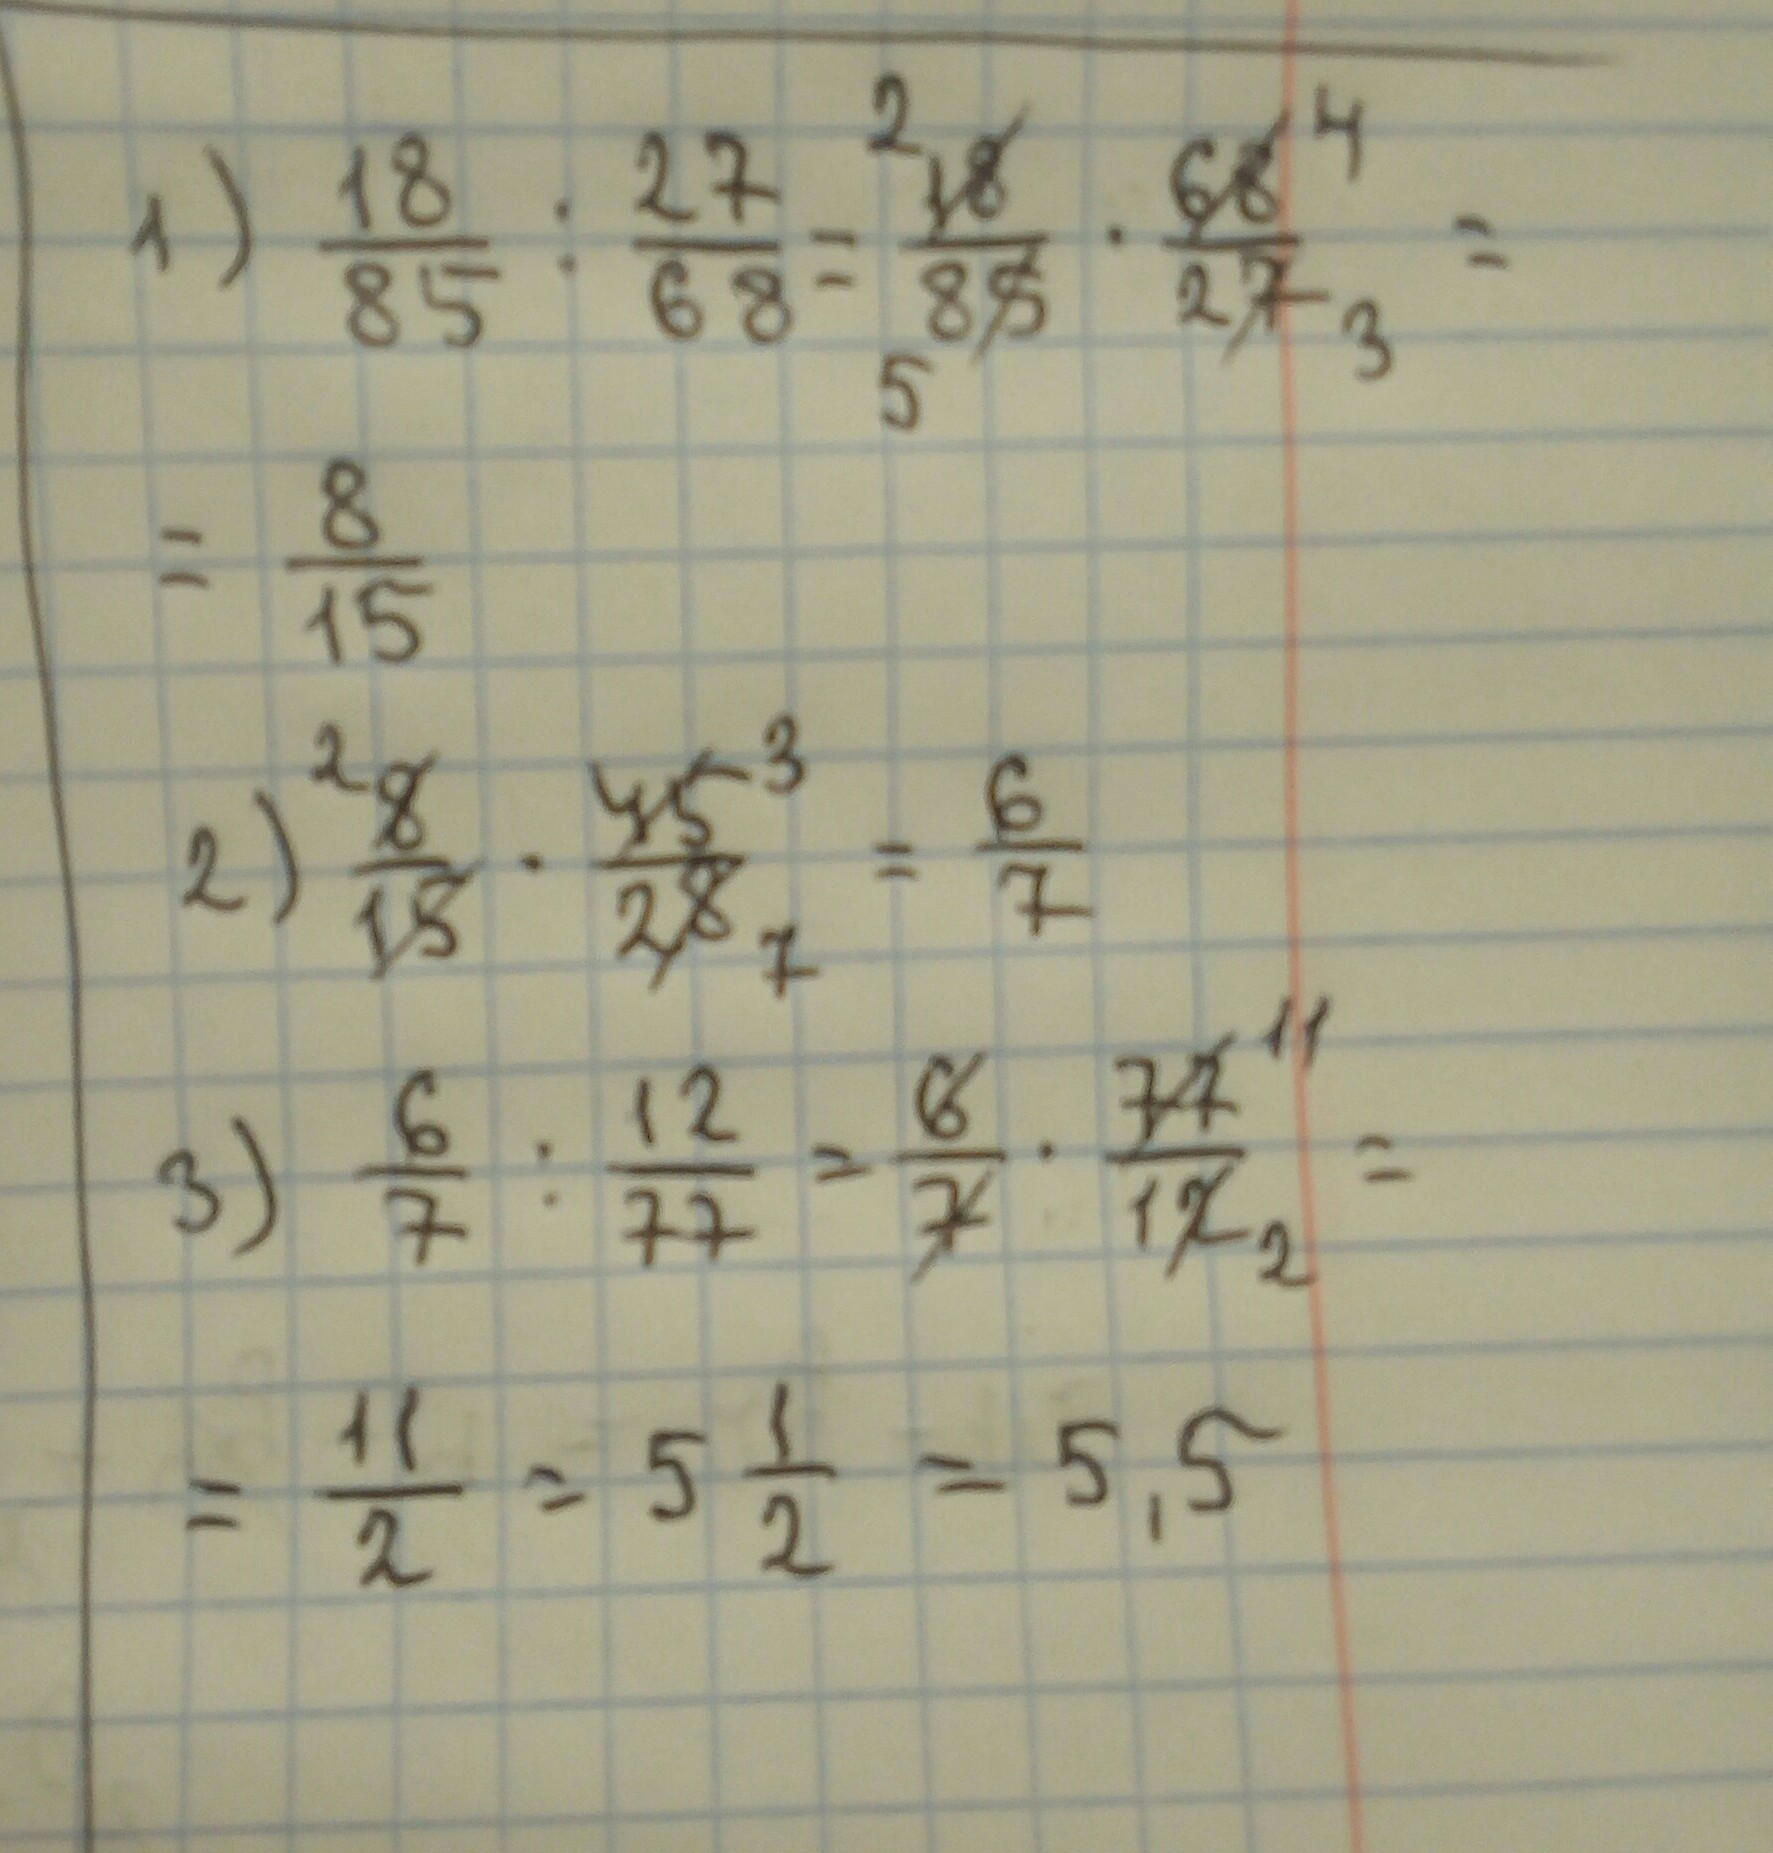 1) 18/85 : 27/68 = 2 18/85 5 · 68/27 4 3 =
= 8/15
2) 2 8/15 · 45/28 3 7 = 6/7
3) 6/7 : 12/77 = 6/7 · 77/12 11 2 =
= 11/2 = 5 1/2 = 5,5